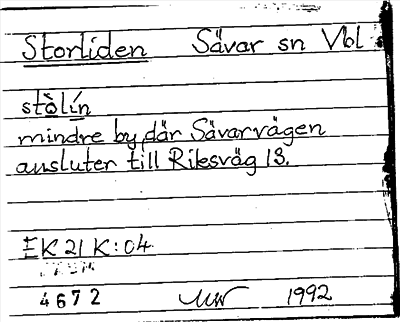 Storliden Sävar sn Vbl
stòlín
mindre by, där Sävarvägen
ansluter till Riksväg 13.
EK 21 K:04
4672 1992